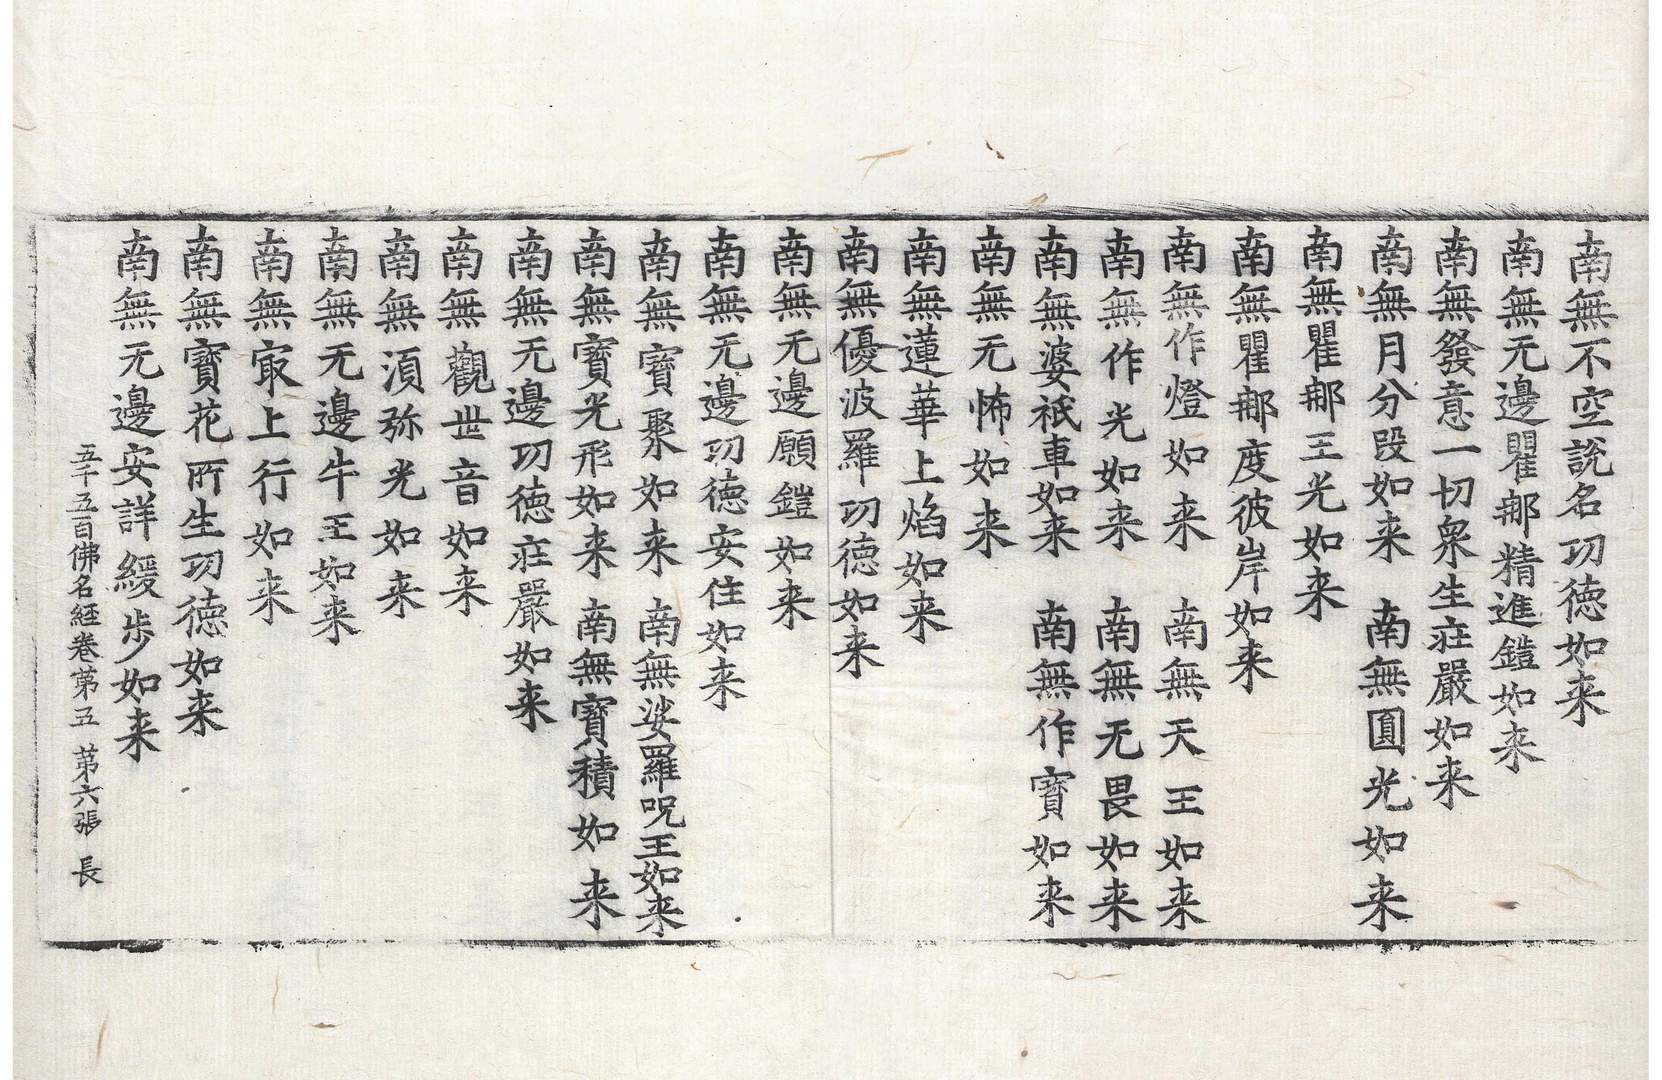 南無不空說名功徳如来
南無无邊瞿𨙻精進鎧如来
南無發意一切衆生莊嚴如来
南無月分段如来　南無圓光如来
南無瞿𨙻王光如来
南無瞿𨙻度彼岸如来
南無作燈如来　南無天王如来
南無作光如来　南無无畏如来
南無婆祇車如来　南無作寶如来
南無无怖如来
南無蓮華上焰如来
南無優波羅功徳如来
南無无邊願鎧如来
南無无邊功徳安住如来
南無寶聚如来　南無娑羅呪王如来
南無寶光形如来　南無寶積如来
南無无邊功徳莊嚴如来
南無觀世音如来
南無湏弥光如来
南無无邊牛王如来
南無㝡上行如来
南無寶花所生功徳如来
南無无邊安詳緩步如来
五千五百佛名経卷苐五　苐六張　長